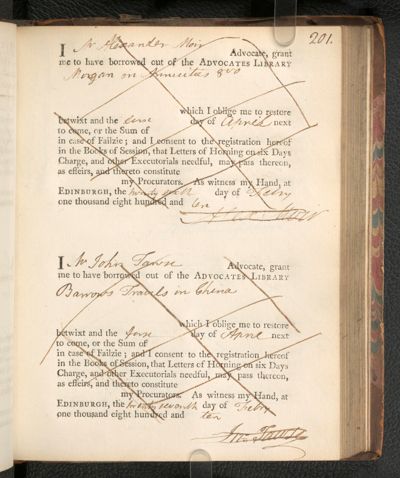 201.
I Mr Alexander Moir Advocate, grant
me to have borrowed out of the ADVOCATES LIBRARY
Morgan on Annuities 8vo
which I oblige me to restore
betwixt and the first day of April next
to come, or the Sum of
in case of Failzie; and I consent to the registration hereof
in the Books of Session, that Letters of Horning on six Days
Charge, and other Executorials needful, may pass thereon,
as effeirs, and thereto constitute
my Procurators. As witness my Hand, at
EDINBURGH, the twenty sixth day of Febry
one thousand eight hundred and ten
I Mr John Tawse Advocate, grant
me to have borrowed out of the ADVOCATES LIBRARY
Barrows Travels in China
which I oblige me to restore
betwixt and the first day of April next
to come, or the Sum of
in case of Failzie; and I consent to the registration hereof
in the Books of Session, that Letters of Horning on six Days
Charge, and other Executorials needful, may pass thereon,
as effeirs, and thereto constitute
my Procurators. As witness my Hand, at
EDINBURGH, the twenty seventh day of Febry
one thousand eight hundred and ten
Jno Tawse